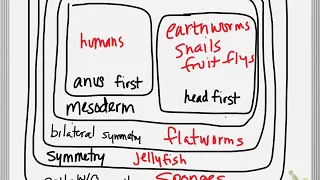 humans
anus first
earthworms
snails
fruit flys
head first
mesoderm
bilateral symmetry flatworms
symmetry jellyfish
sponges